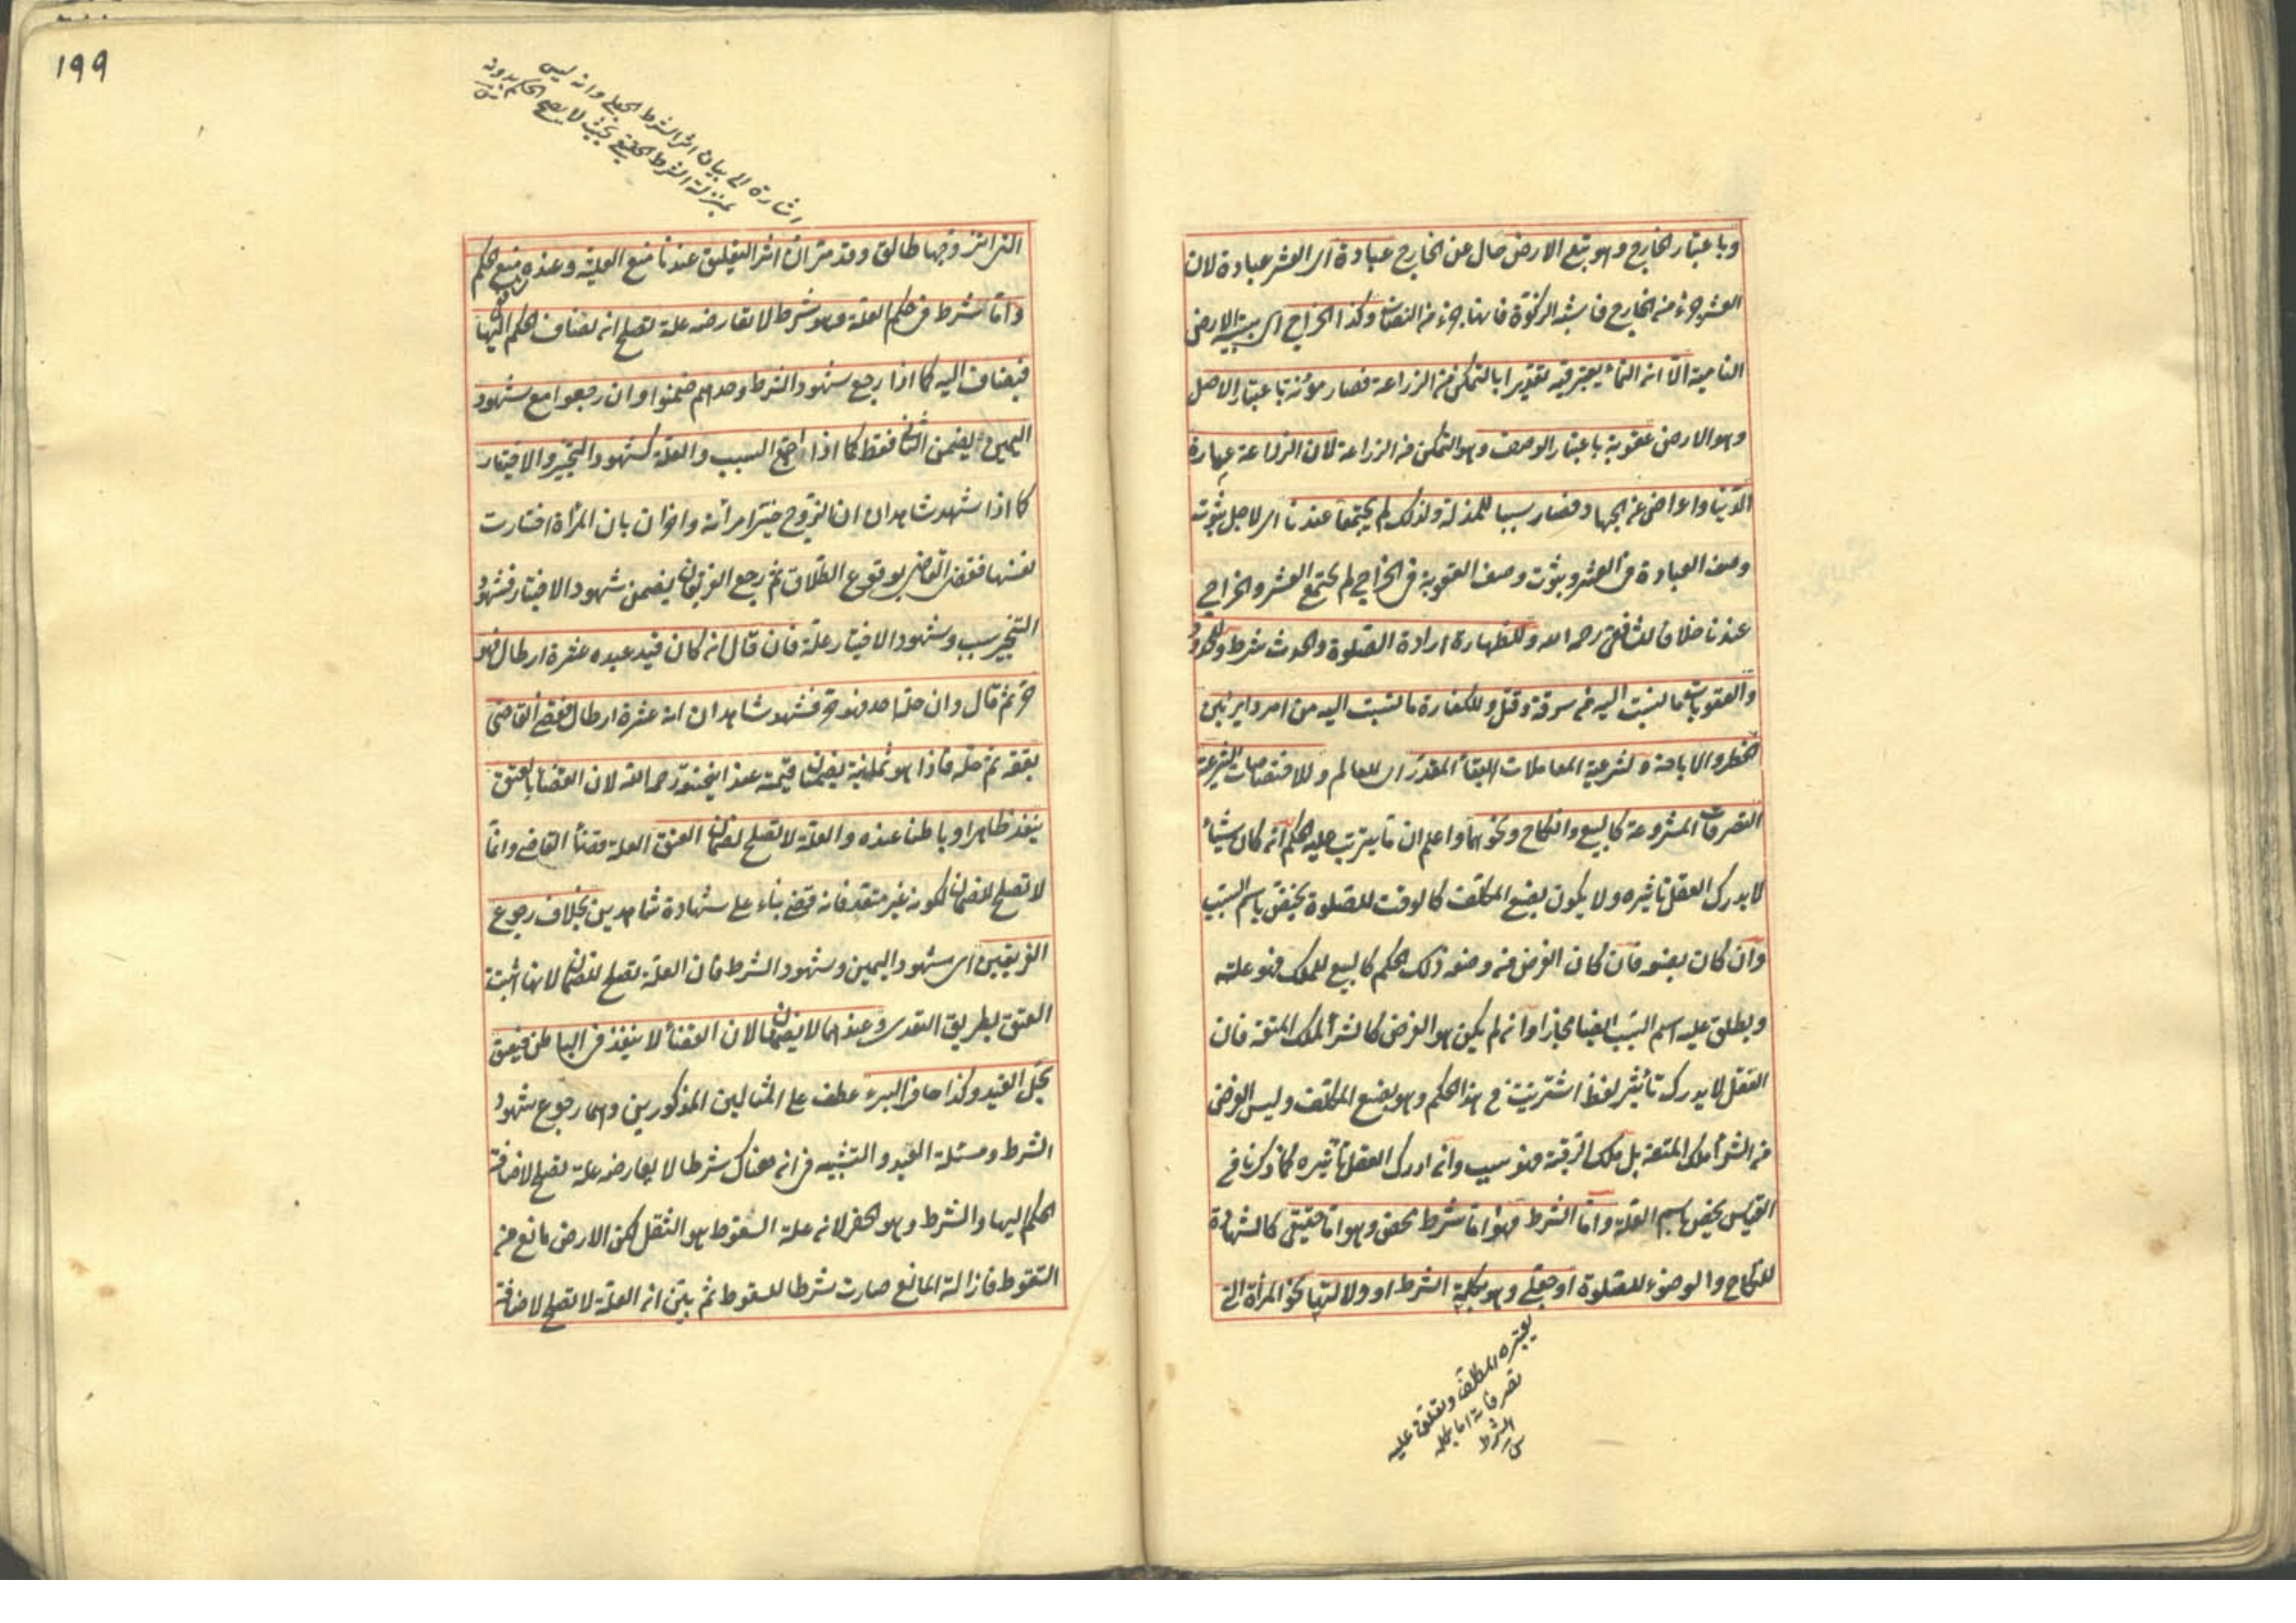 وباعتبار الخارج وهو تبع الارض حال عن الخارج عبادة اى العشر عبادة لان
العشر جزء من الخارج فاشبه الزكوة فانها جزء من النصاب وكذا الخراج اى سببه الارض
النامية الا ان النماء يعتبر فيه تقديرا بالتمكن من الزراعة فصار مؤنة باعتبار الاصل
وهو الارض عقوبة باعتبار الوصف وهو التمكن من الزراعة لان الزراعة عمارة
الدنيا واعراض عن الجهاد فصار سببا للمذلة ولذلك لم يجتمعا عندنا اى لاجل ثبوت
وصف العبادة فى العشر وثبوت وصف العقوبة فى الخراج لم يجتمع العشر والخراج
عندنا خلافا للشافعى رحمه الله وللطهارة ارادة الصلوة والحدث شرط وللحدود
والعقوبات ما نسبت اليه من سرقة وقتل وللكفارة ما نسبت اليه من امر دائر بين
الحظر والاباحة ولشرعية المعاملات البقاء المقدر اى للعالم وللاختصاصات الشرعية
التصرفات المشروعة كالبيع والنكاح ونحوهما واعلم ان ما يترتب عليه الحكم انه كان شيئا
لا يدرك العقل تاثيره ولا يكون بصنع المكلف كالوقت للصلوة يختص باسم السبب
وان كان بصنعه فان كان الغرض من وضعه ذلك الحكم كالبيع للملك فهو علته
ويطلق عليه اسم السبب ايضا مجازا وان لم يكن هو الغرض كالشراء لملك المتعة فان
العقل لا يدرك تأثير لفظ اشتريت فى هذا الحكم وهو بصنع المكلف وليس الغرض
من الشراء ملك المتعة بل ملك الرقبة فهو سبب وان ادرك العقل تأثيره كما ذكرنا فى
القياس يخص باسم العلة واما الشرط فهو اما شرط محض وهو اما حقيقى كالشهادة
للنكاح والوضوء للصلوة او جعلى وهو بكلمة الشرط او دلالتها نحو المرأة التى
يعتبره المكلف وتعلق عليه
تصرفاته اما بكلمة
الشرط
١٩٩
اشارة الى بيان اثر الشرط الجعلى وانه ليس
بمنزلة الشرط الحقيقى بحيث لا يصح الحكم بدونه
التى اتزوجها طالق وقد مر ان اثر التعليق عندنا منع العلية وعنده منع حكم
واما شرط فى حكم العلة وهو شرط لا تعارضه علة تصلح ان يضاف الحكم اليها
فيضاف اليه كما اذا رجع شهود الشرط وحدهم ضمنوا وان رجعوا مع شهود
اليمين يضمن الثانى فقط كما اذا اجتمع السبب والعلة كشهود التخيير والاختيار
كما اذا شهد شاهدان ان الزوج خير امرأته واخران بان المرأة اختارت
نفسها فقضى القاضى بوقوع الطلاق ثم رجع الفريقان يضمن شهود الاختيار فشهود
التخيير سبب وشهود الاختيار علة فان قال ان كان قيد عبده عشرة ارطال فهو
حر ثم قال وان حله احد فهو حر فشهد شاهدان انه عشرة ارطال فقضى القاضى
بعتقه ثم حله فاذا هو ثمانية يضمنان قيمته عند ابيحنيفة رحمه الله لان القضاء بالعتق
ينفذ ظاهرا وباطنا عنده والعلة لا تصلح لضمان العتق العلة قضاء القاضى وانما
لا تصلح للضمان لكونه غير متعد فانه قضى بناء على شهادة شاهدين بخلاف رجوع
الفريقين اى شهود اليمين وشهود الشرط فان العلة تصلح للضمان لانها اثبتت
العتق بطريق التعدى وعندهما لا يضمنان لان القضاء لا ينفذ فى الباطن فيعتق
بحل القيد وكذا حافر البئر عطف على المثالين المذكورين وهما رجوع شهود
الشرط ومسئلة القيد والتشبيه فى ان هناك شرطا لا يعارضه علة تصلح لاضافة
الحكم اليها والشرط وهو الحفر لانه علة السقوط هو الثقل لكن الارض مانع من
السقوط فازالة المانع صارت شرطا للسقوط ثم بين ان العلة لا تصلح لاضافة